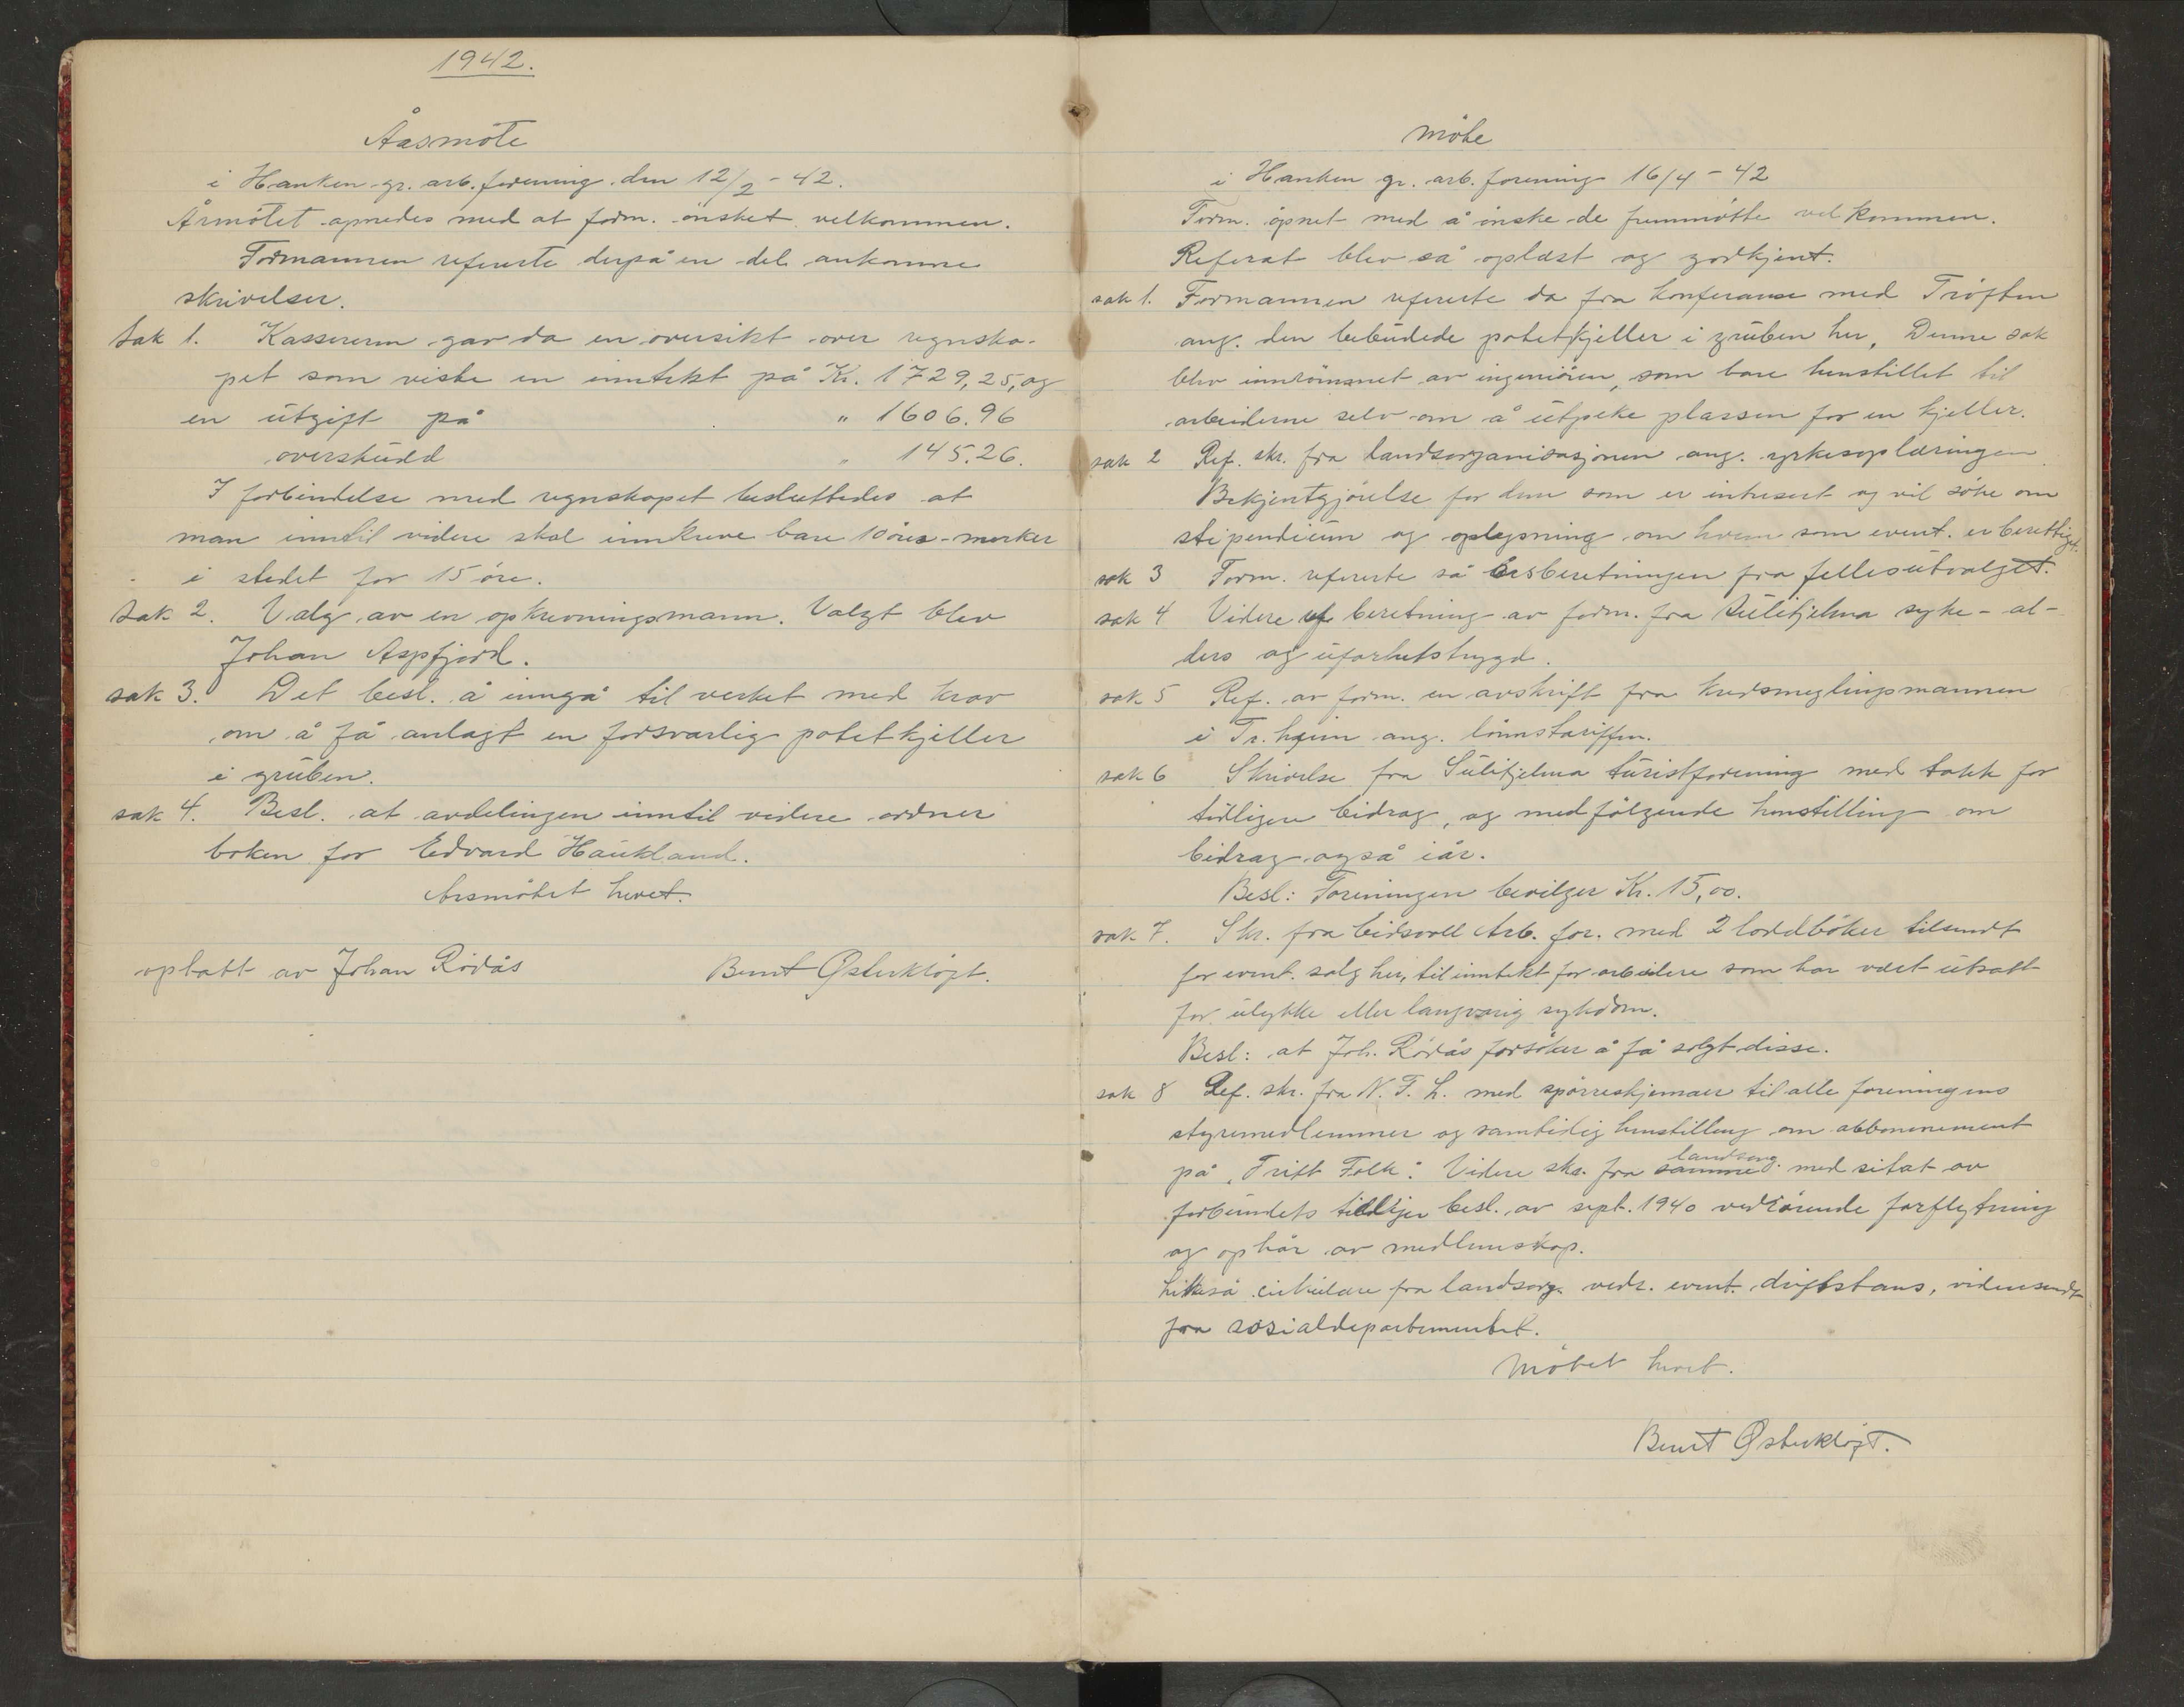 1942.
Årsmöte
i Hanken gr. arb. forening den 12/2 - 42.
Årmötet apnedes med at form. önsket velkommen.
Formannen refererte derpå en del ankomne
skrivelser.
Sak 1. Kassereren gav da en oversikt over regnska-
pet som viste en inntekt på Kr. 1729,25, og
en ütgift på " 1606.96
overskúdd " 145.26.
I forbindelse med regnskapet besluttedes at
man inntil videre skal innkreve bare 10 öres-merker
i stedet for 15 öre.
Sak 2. Valg av en opkrevningsmann. Valgt blev
Johan Aspfjord.
sak 3. Det besl. å inngå til verket med krav
om å få anlagt en forsvarlig potetkjeller
i grüben.
sak 4. Besl. at avdelingen inntil videre ordner
boken for Edvard Haukland.
Årsmötet hevet.
oplatt av Johan Rödås Bernt Østerkløft.
Möte
i Hanken gr. arb. forening 16/4 - 42
Form. åpnet med å önske de fremmötte velkommen.
Referat blev så oplæst og godkjent.
sak 1. Formannen refererte da fra konferanse med Tröften
ang. den bebüdede potetkjeller i grüben her, Denne sak
blev innrömmet av ingeniören, som bare henstillet til
arbeiderne selv om å ütpeke plassen for en kjeller.
sak 2 Ref. skr. fra landsorganisasjonen ang. yrkesoplæringen
Bekjentgjörelse for dem som er intresert og vil söke om
stipendium og oplysning om hvem som event. er berettiget.
sak 3 Form. refererte så årsberetningen fra fellesütvalget.
sak 4 Videre ref. beretning av form. fra Sülitjelma syke- al-
ders og üförhetstrygd.
sak 5 Ref. av form. en avskrift fra kredsmeglingsmannen
i Tr. heim ang. lönnstariffen.
sak 6 Skrivelse fra Sülitjelma türistforening med takk for
tidligere bidrag, og medfölgende henstilling om
bidrag også iår.
Besl: Foreningen bevilger Kr. 15,00.
sak 7. Skr. fra Eidsvoll Arb. for. med 2 loddböker tilsendt
for event. salg her, til inntekt for arbeidere som har været ütsatt
for ülykke eller langvarig sykdom.
Besl: at Joh. Rödås forsöker å få solgt disse.
sak 8 Ref. skr. fra N. F. L. med spörreskjemaer til alle foreningens
styremedlemmer og samtidig henstilling om abbonnement
på "Fritt Folk". Videre skr. fra samme landsorg. med sitat av
forbündets tidliger besl. av sept. 1940 vedrörende forflytning
og ophör av medlemskap.
Likeså cirkülære fra landsorg. vedr. event. driftstans, videresendt
fra sosialdepartementet.
Mötet hevet.
Bernt Østerkløft.